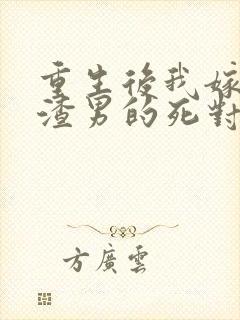 重生後我嫁
渣男的死對
方廣雲